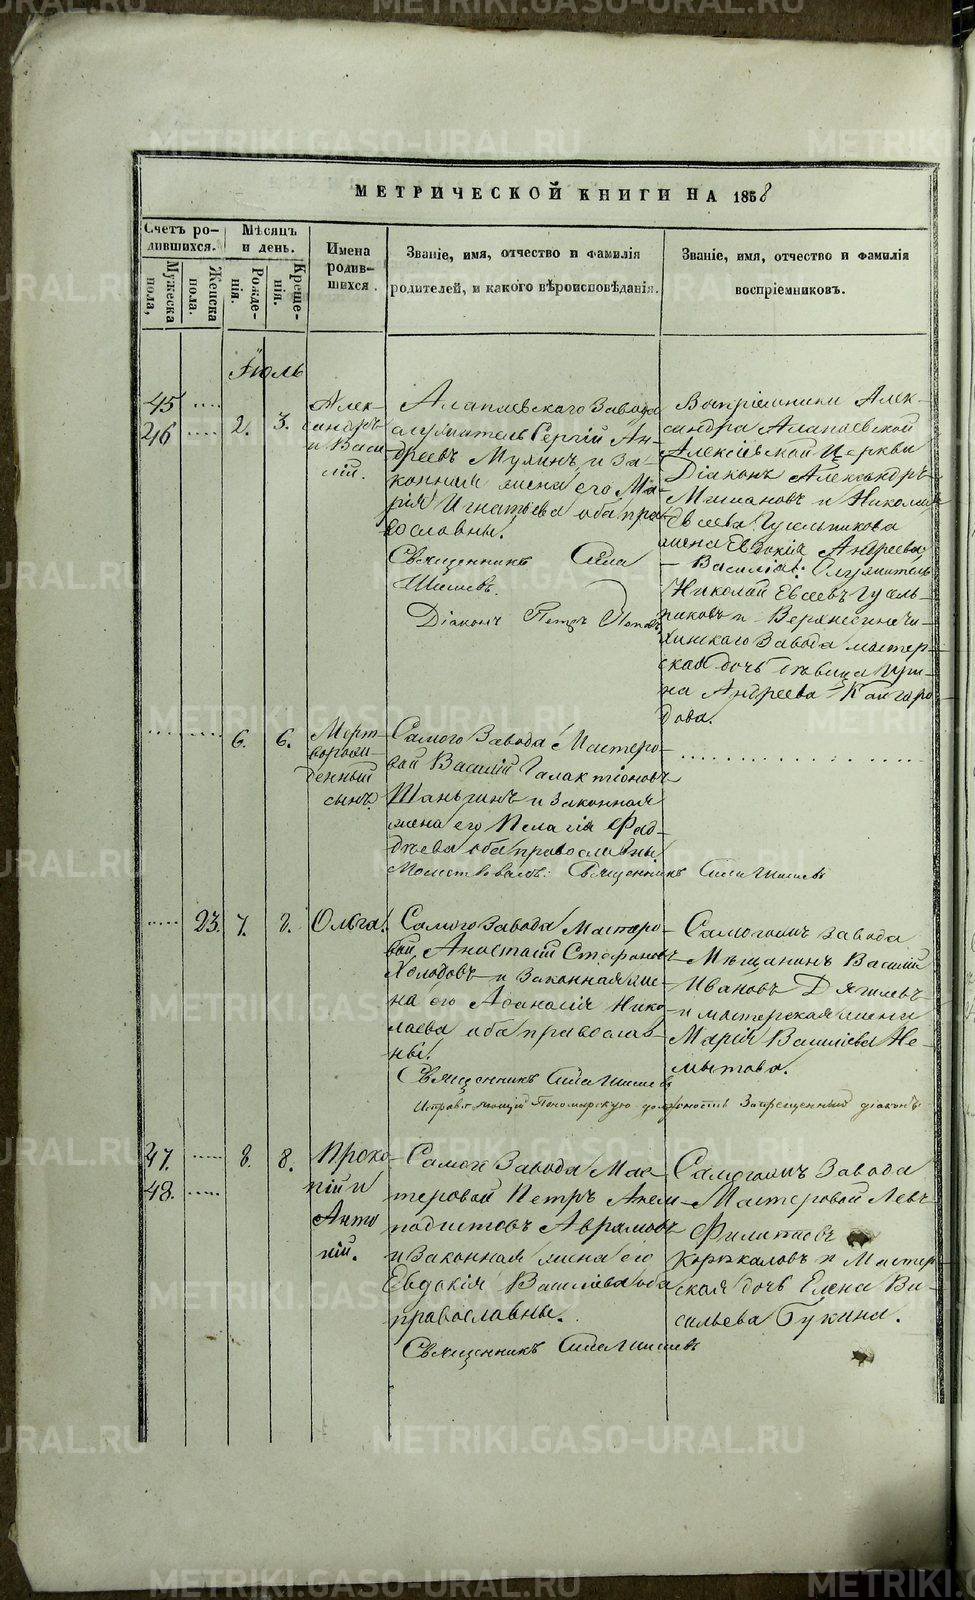 МЕТРИЧЕСКОЙ КНИГИ НА 1858
Счетъ ро-
дившихся.
Мужеска
пола,
Женска
пола.
Мѣсяцъ
и день.
Рожде-
нія.
Креще-
нія.
Имена
родив-
шихся.
Званіе, имя, отчество и фамилія
родителей, и какого вѣроисповѣданія.
Званіе, имя, отчество и фамилія
воспріемниковъ.
Іюль
45
46
2.
3.
Алек-
сандръ
и Васи-
лій.
Алапаевскаго Завода
служитель Сергій Ан-
дреевъ Мухинъ и За-
конная жена его Ма-
рія Игнатьева оба пра-
вославны.
Священникъ Сила
Діаконъ Петръ Попов
Воспріемники Алек-
сандра Алапаевской
Алексіевской Церкви
Діаконъ Александръ
и Николая
Евсеева Гусельникова
жена Евдокія Андреева
Василія: Служитель
Николай Евсеевъ Гусель-
никовъ и Верхнесинячи-
хинскаго Завода мастер-
ская дочь дѣвица Ири-
на Андреева Кайгоро-
дова.
6.
6.
Мерт-
ворож-
денный
сынъ.
Самого Завода Мастеро-
вой Василій Галактіоновъ
Шаньгинъ и Законная
жена его Пелагія Фад-
дѣева оба православны
Молитвовалъ: Священникъ Сила
23.
7.
8.
Ольга.
Самого Завода Мастеро-
вой Анастасій Стефановъ
Холодовъ и Законная же-
на его Афанасія Нико-
лаева оба православ-
ны.
Священникъ Сила
Исправляющій Пономарскую должность Запрещенный діаконъ
Самогожъ завода
Мѣщанинъ Василій
Ивановъ Дягилевъ
и мастерская жена
Марія Васильева Не-
мытова.
47.
48.
8.
8.
Проко-
пій и
Анто
ній.
Самого Завода Мас-
теровой Петръ Анем-
подистовъ Аврамовъ
и Законная жена его
Евдокія Васильева оба
православные.
Священникъ Сила
Самогожъ Завода
Мастеровой Левъ
Филиповъ
и Мастер-
ская дочь Елена Ва-
сильева Букина.